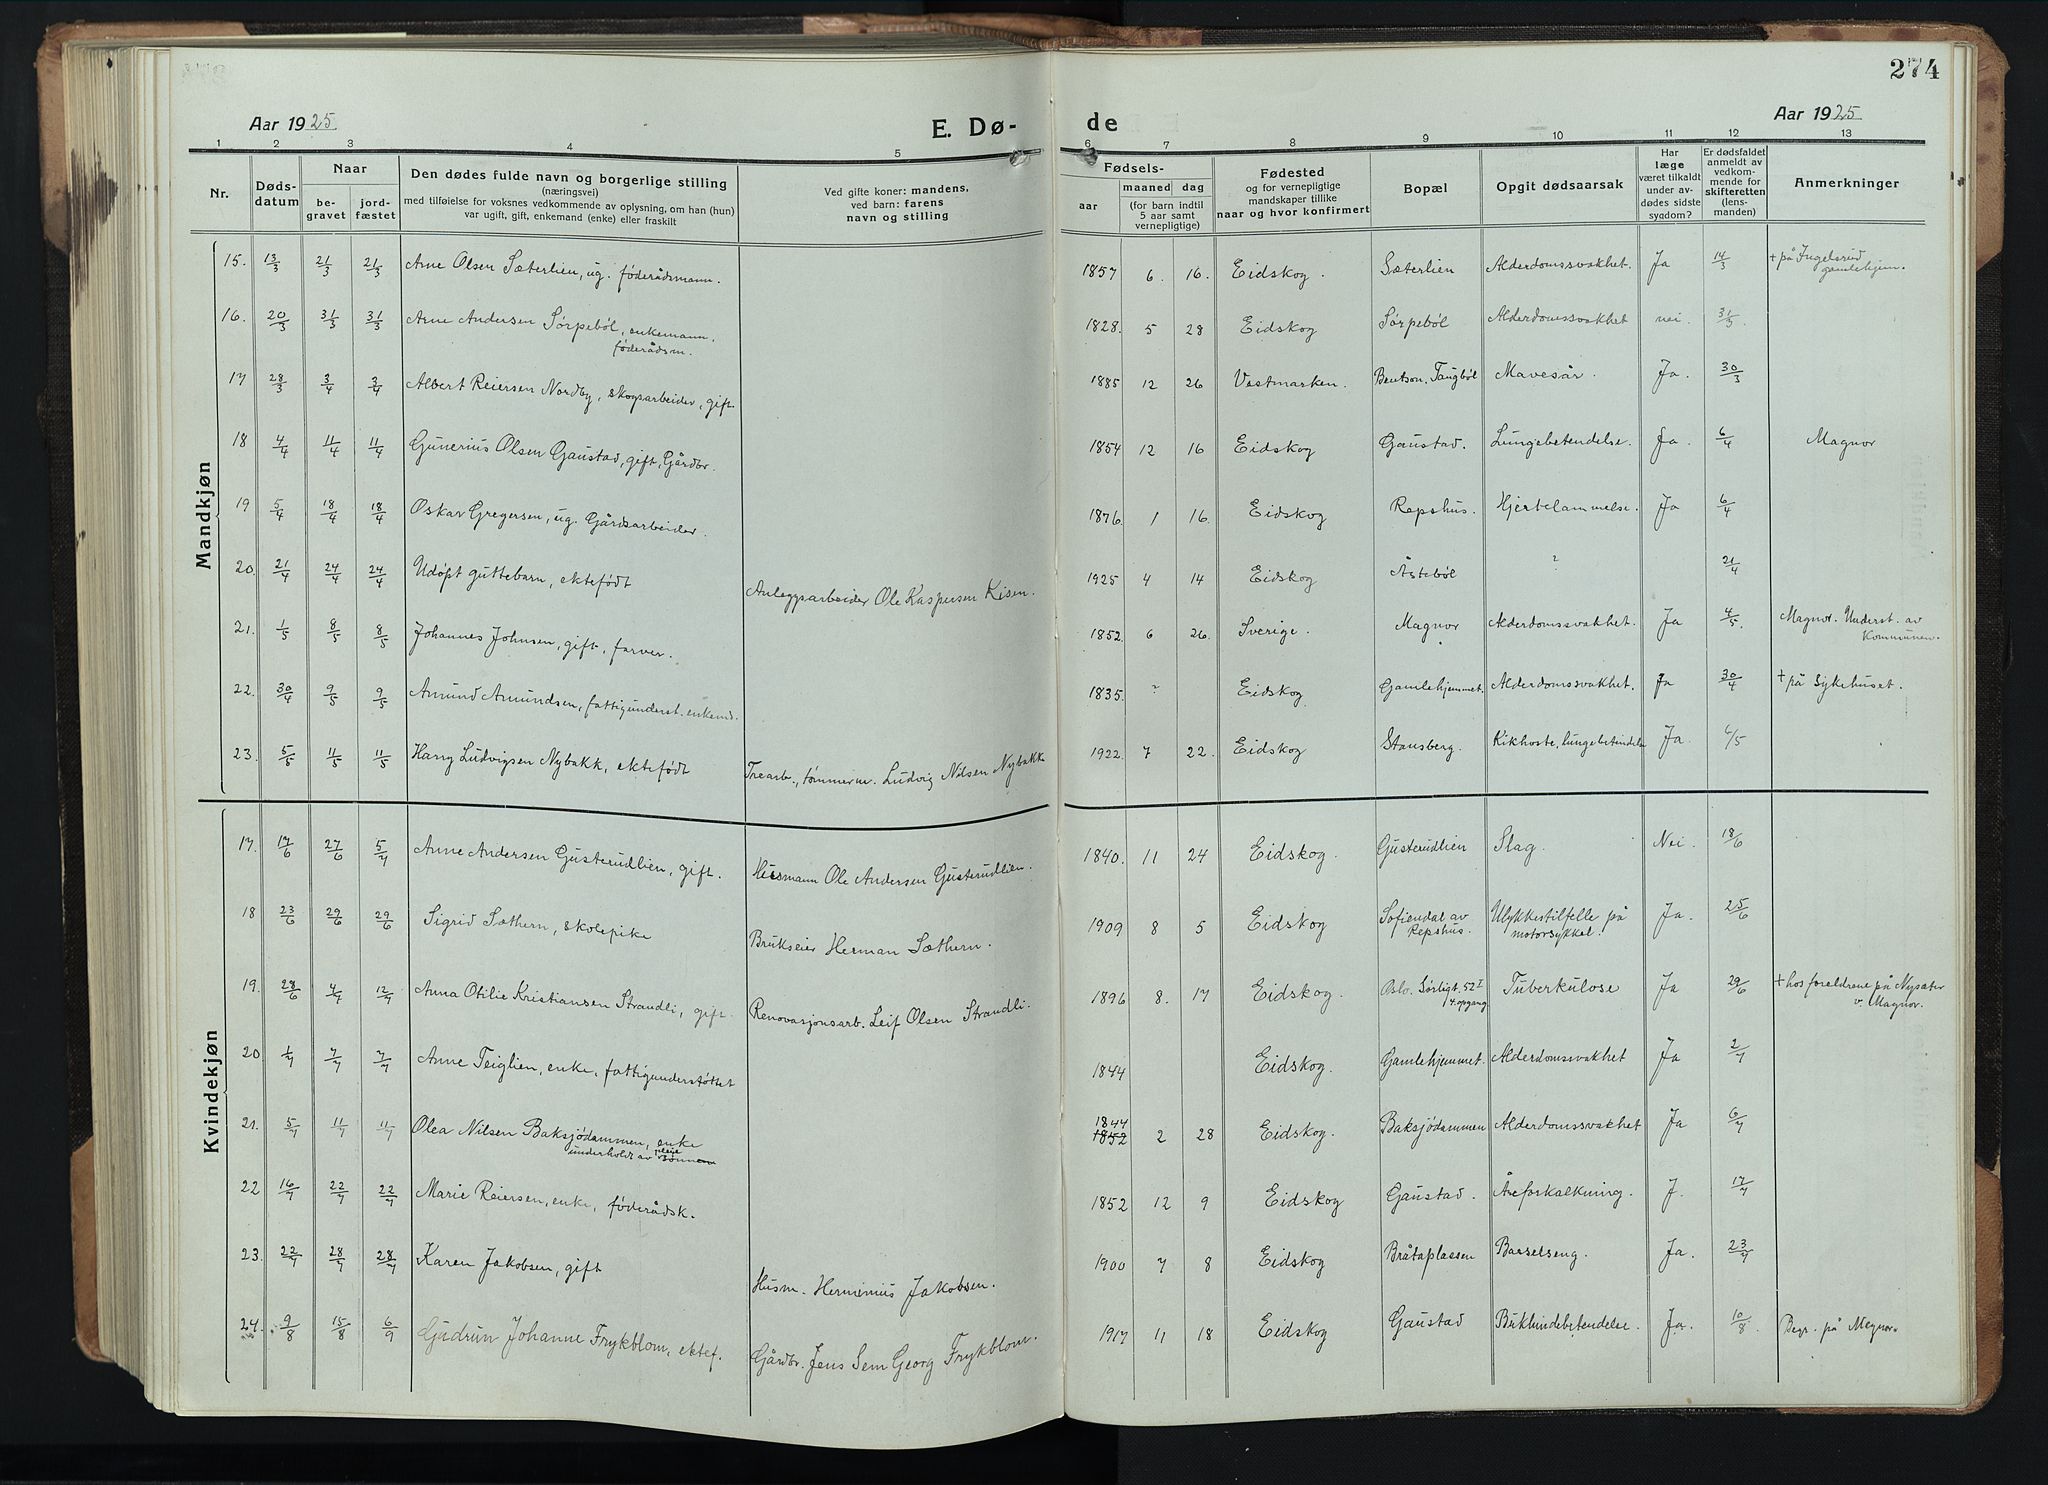 274
Aar 1925.
E. Dø-
de
Aar 1925
1 2 3 4 5 6 7 8 9 10 11 12 13
Nr.
Døds-
datum
Naar
be-
gravet
jord-
fæstet
Den dødes fulde navn og borgerlige stilling
(næringsvei)
med tilføielse for voksnes vedkommende av oplysning, om han (hun)
var ugift, gift, enkemand (enke) eller fraskilt
Ved gifte koner: mandens,
ved barn: farens
navn og stilling
Fødsels-
aar
maaned
dag
(for barn indtil
5 aar samt
vernepligtige)
Fødested
og for vernepligtige
mandskaper tillike
naar og hvor konfirmert
Bopæl
Opgit dødsaarsak
Har
læge
været tilkaldt
under av-
dødes sidste
sygdom?
Er dødsfaldet
anmeldt av
vedkom-
mende for
skifteretten
(lens-
manden)
Anmerkninger
Mandkjøn
15. 13/3 21/3 21/3 Arne Olsen Sæterlien, ug. føderådsmann. 1857 6. 16. Eidskog. Sæterlien Alderdomssvakhet. Ja 14/3 + på Ingelsrud
gamlehjem.
16. 20/3 31/3 31/3 Arne Andersen Sörpeböl, enkemann, 1828. 5 28 Eidskog Sörpeböl Alderdomssvakhet nei. 31/3
føderådsm.
17 28/3 3/4 3/4 Albert Reiersen Nordby, skogsarbeider, gift. 1885 12 26 Vestmarken. Bentson, Taugböl Mavesår. Ja. 30/3
18 4/4 11/4 11/4 Gunerius Olsen Gaustad, gift, Gårdbr. 1854 12 16 Eidskog Gaustad. Lungebetendelse. Ja. 6/4 Magnor
19 5/4 18/4 18/4 Oskar Gregersen, ug. Gårdsarbeider. 1876. 1 16. Eidskog Repshus. Hjertelammelse. Ja 6/4
20. 21/4 24/4 24/4 Udöpt guttebarn, ektefödt Anleggsarbeider Ole Kaspersen Kisen. 1925 4 14 Eidskog Åsteböl ? 21/4
21. 1/5 8/5 8/5 Johannes Johnsen, gift, farver. 1852. 6 26. Sverige. Magnor Alderdomssvakhet. Ja 4/5. Magnor. Underst. av
Kommunen.
22. 30/4 9/5 9/5 Amund Amundsen, fattigunderst. enkem. 1835. ? Eidskog Gamlehjemmet. Alderdomssvakhet. Ja 30/4 + på Sykehuset.
23. 5/5 11/5 11/5 Harry Ludvigsen Nybakk, ektefödt Trearb., tømmerm. Ludvig Nilsen Nybakk 1922. 7 22. Eidskog Stansberg. Kikhoste, lungebetendelse Ja. 6/5
Kvindekjøn
17. 17/6 27/6 5/7 Anne Andersen Gusterudlien, gift. Husmann Ole Andersen Gusterudlien. 1840. 11 24 Eidskog. Gusterudlien Slag. Nei. 18/6
18 23/6 29/6 29/6 Sigrid Sæthern, skolepike Brukseier Herman Sæthern. 1909 8 5 Eidskog Sofiendal av Ulykkestilfelle på Ja. 25/6
Repshus. motorsykkel.
19. 28/6 4/7 12/7 Anna Otilie Kristiansen Strandli, gift. Renovasjonsarb. Leif Olsen Strandli. 1896 8. 17 Eidskog. Oslo. Sörligt. 52 I Tuberkulose Ja 29/6 + hos foreldrene på Nysæter
4. opgang v. Magnor.
20 1/7 7/7 7/7 Anne Teiglien, enke, fattigunderstöttet 1844 Eidskog. Gamlehjemmet. Alderdomssvakhet Ja 2/7
21. 5/7 11/7 11/7 Olea Nilsen Baksjödammen, enke 1844 1852 2 28 Eidskog. Baksjödammen Alderdomssvakhet Ja 6/7
underholdt av pleie sønnen
22 16/7 22/7 22/7 Marie Reiersen, enke, føderådsk. 1852 12 9 Eidskog Gaustad. Åreforkalkning. J. 17/7
23. 22/7 28/7 28/7 Karen Jakobsen, gift Husm. Herminius Jakobsen. 1900 7 8 Eidskog Bråtaplassen Barselseng. Ja. 23/7
24. 9/8 15/8 6/9 Gudrun Johanne Frykblom, ektef. Gårdbr. Jens Sem Georg Frykblom. 1917 11 18 Eidskog Gaustad Bukhindebetendelse. Ja. 10/8 Begr. på Magnor.